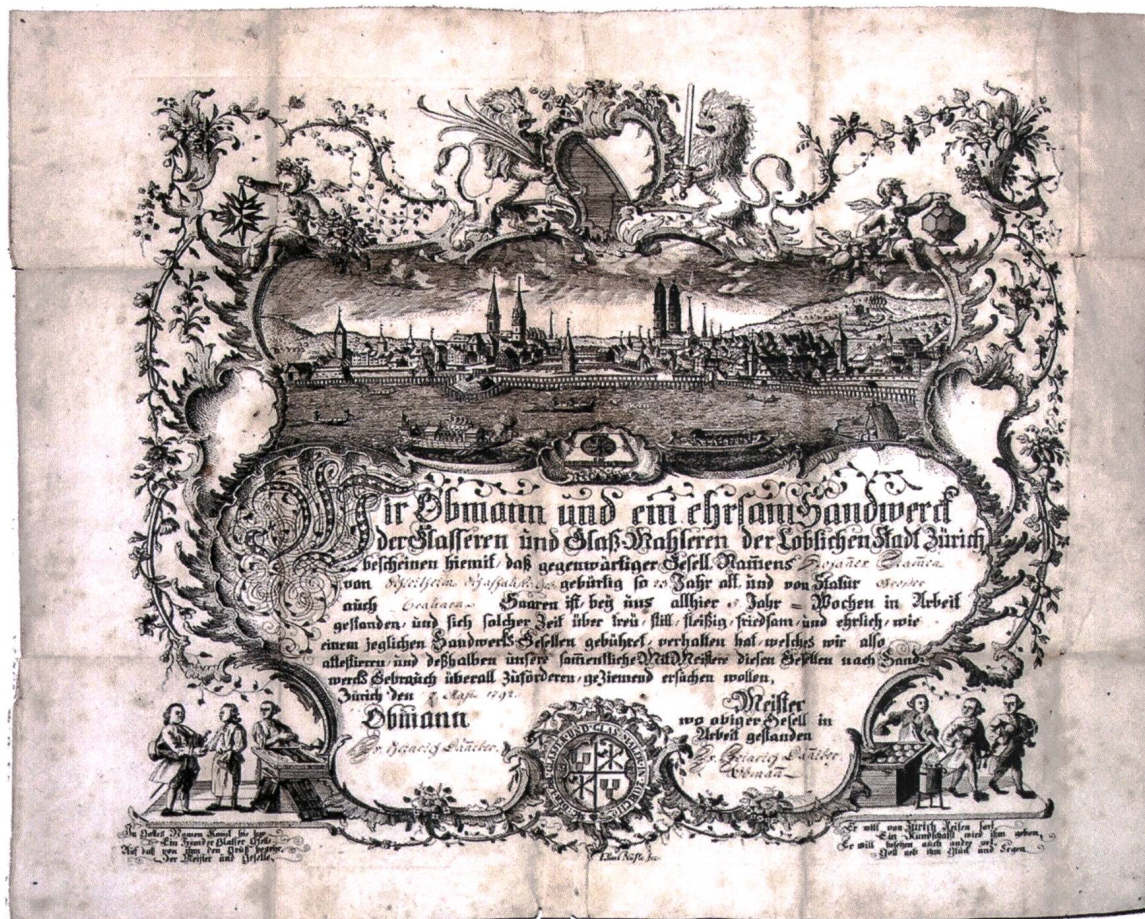 Wir Obmann und ein ehrsam Handwerck
der Glasseren und Glaß-Mahleren der Loblichen Stadt Zürich
bescheinen hiemit, daß gegenwärtiger Gesell Namens
von Schleitheim gebürtig so 23 Jahr alt, und von Statur Grosser
auch Haaren ist, bey uns allhier Jahr = Wochen in Arbeit
gestanden, und sich solcher Zeit über treü, still, fleißig, friedsam, und ehrlich, wie
einem jeglichen Handwercks Gesellen gebühret, verhalten hat, welches wir also
attestieren, und deßhalben unsere sammentliche Mit Meistere diesen Gesellen nach Hand-
wercks Gebraüch überall zuförderen, geziemend ersüchen wollen,
Zürich den 1792.
Obmann
Hs. Heinrich Däniker.
Meister
wo obiger Gesell in
Arbeit gestanden
Hs. Heinrich Däniker.
Obman
In Gottes Namen Komt hie her
Ein Frömder Glasser Gsell
Auf daß von ihm den Grüß
Der Meister und Geselle.
Er will von Zürich Reisen fort
Ein Kundschafft wird ihm geben,
Er will besehen auch andre
Gott geb ihm Glück und Segen